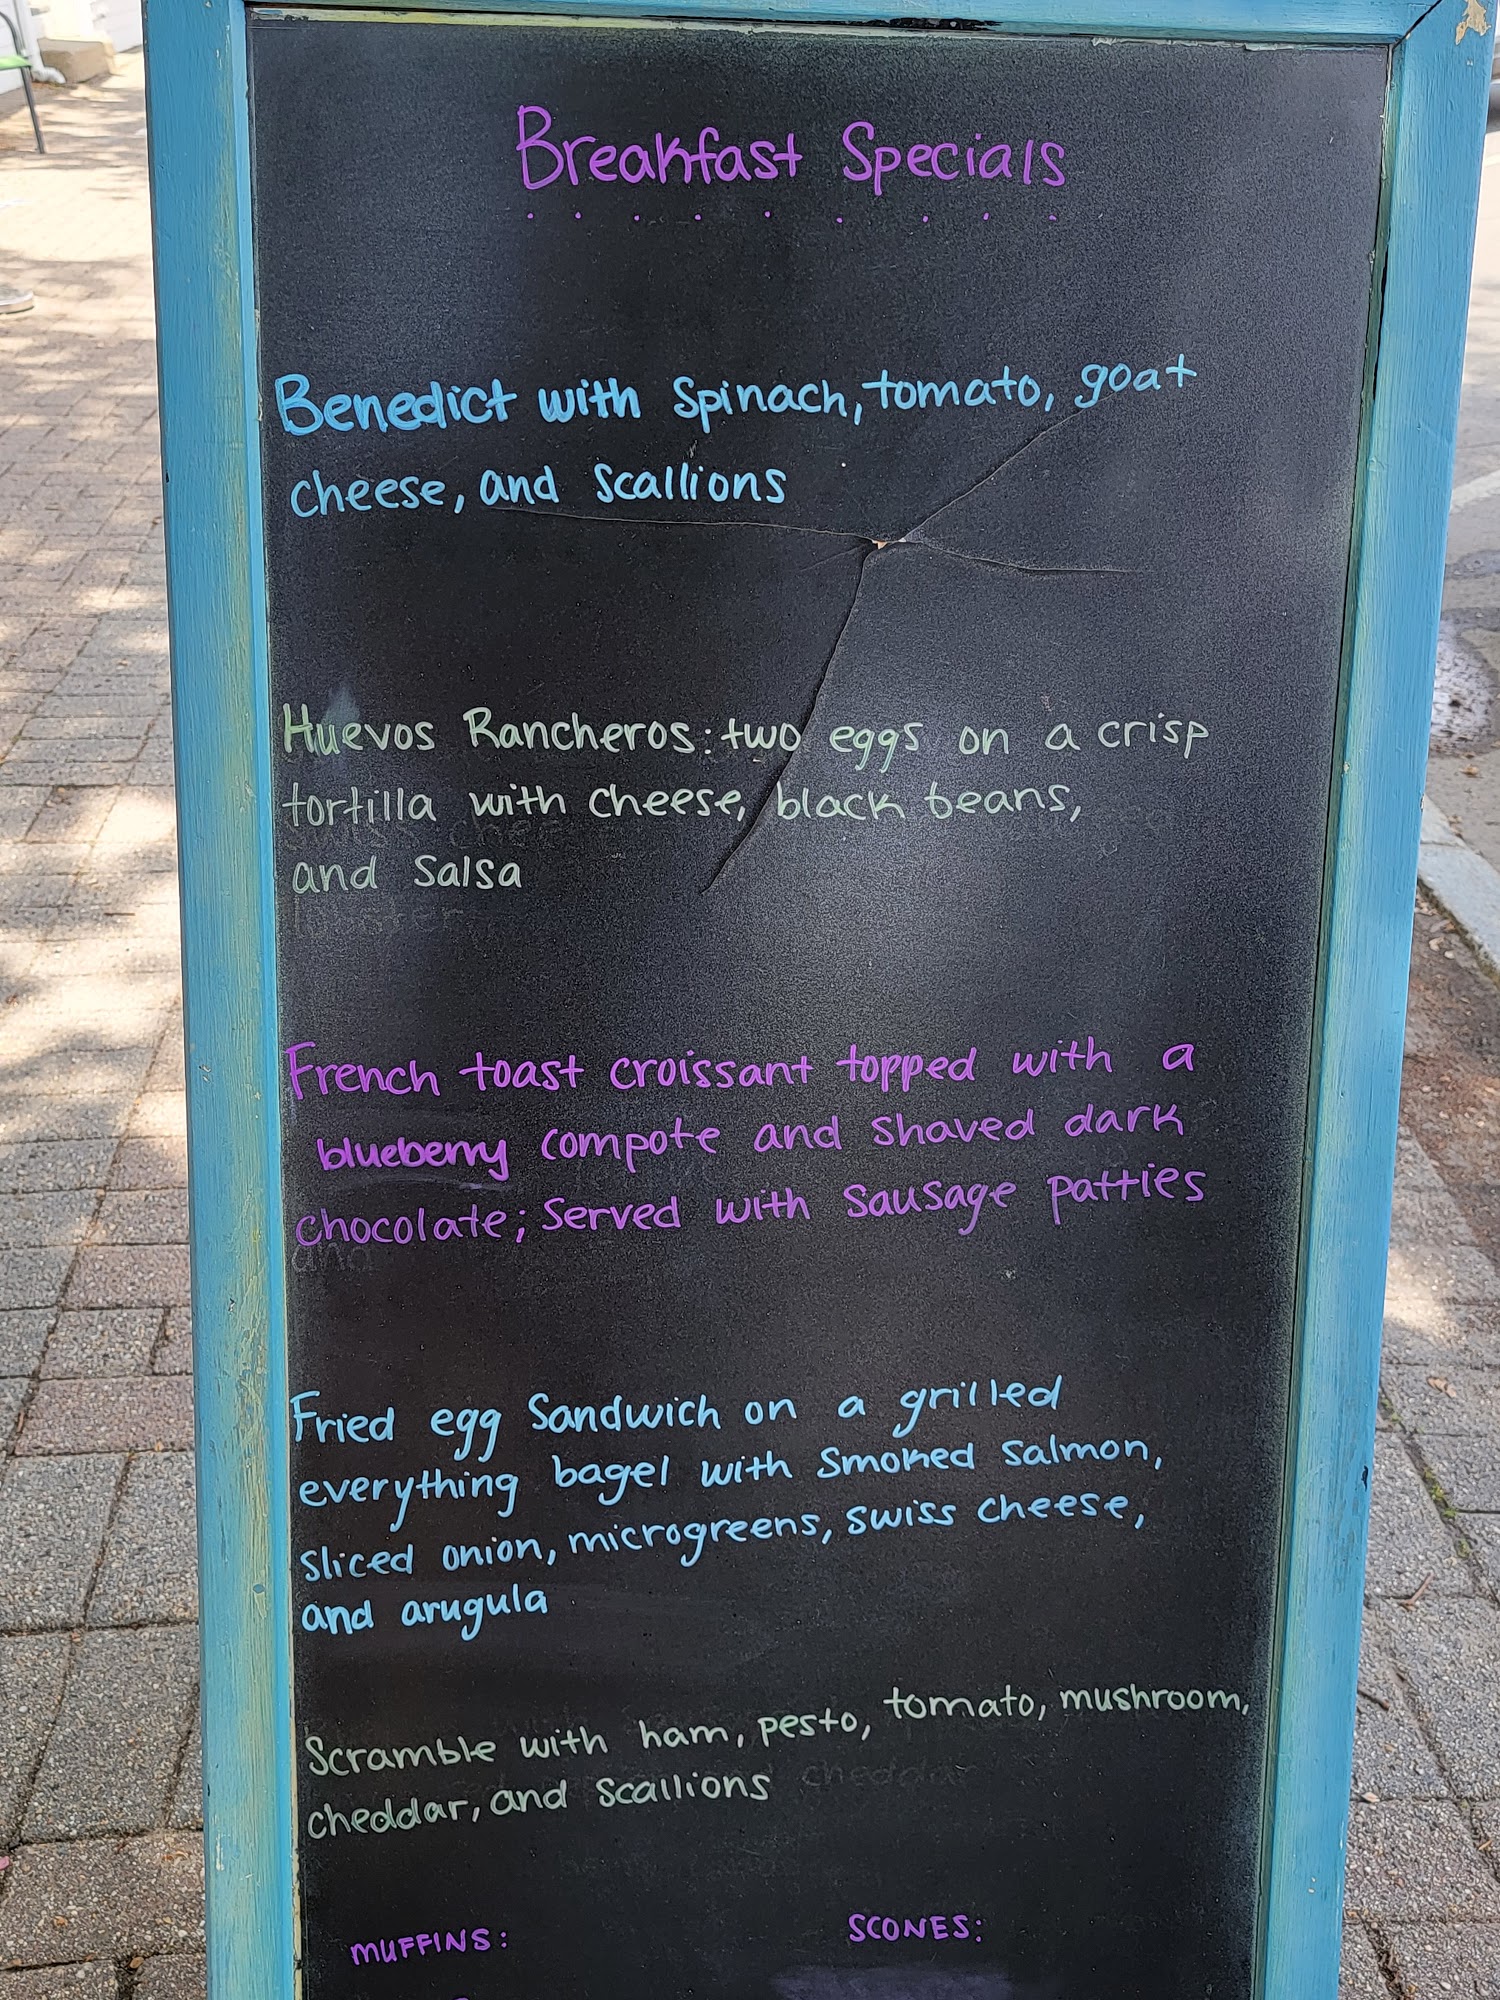 Breakfast Specials
Benedict with Spinach, tomato, goat
cheese, and scallions
Huevos Rancheros: two eggs on a crisp
tortilla with cheese, black beans,
and salsa
French toast croissant topped with a
blueberry compote and shaved dark
chocolate; served with sausage patties
Fried egg sandwich on a grilled
everything bagel with smoked salmon,
sliced onion, microgreens, swiss cheese,
and arugula
Scramble with ham, pesto, tomato, mushroom,
cheddar, and scallions
MUFFINS: SCONES: